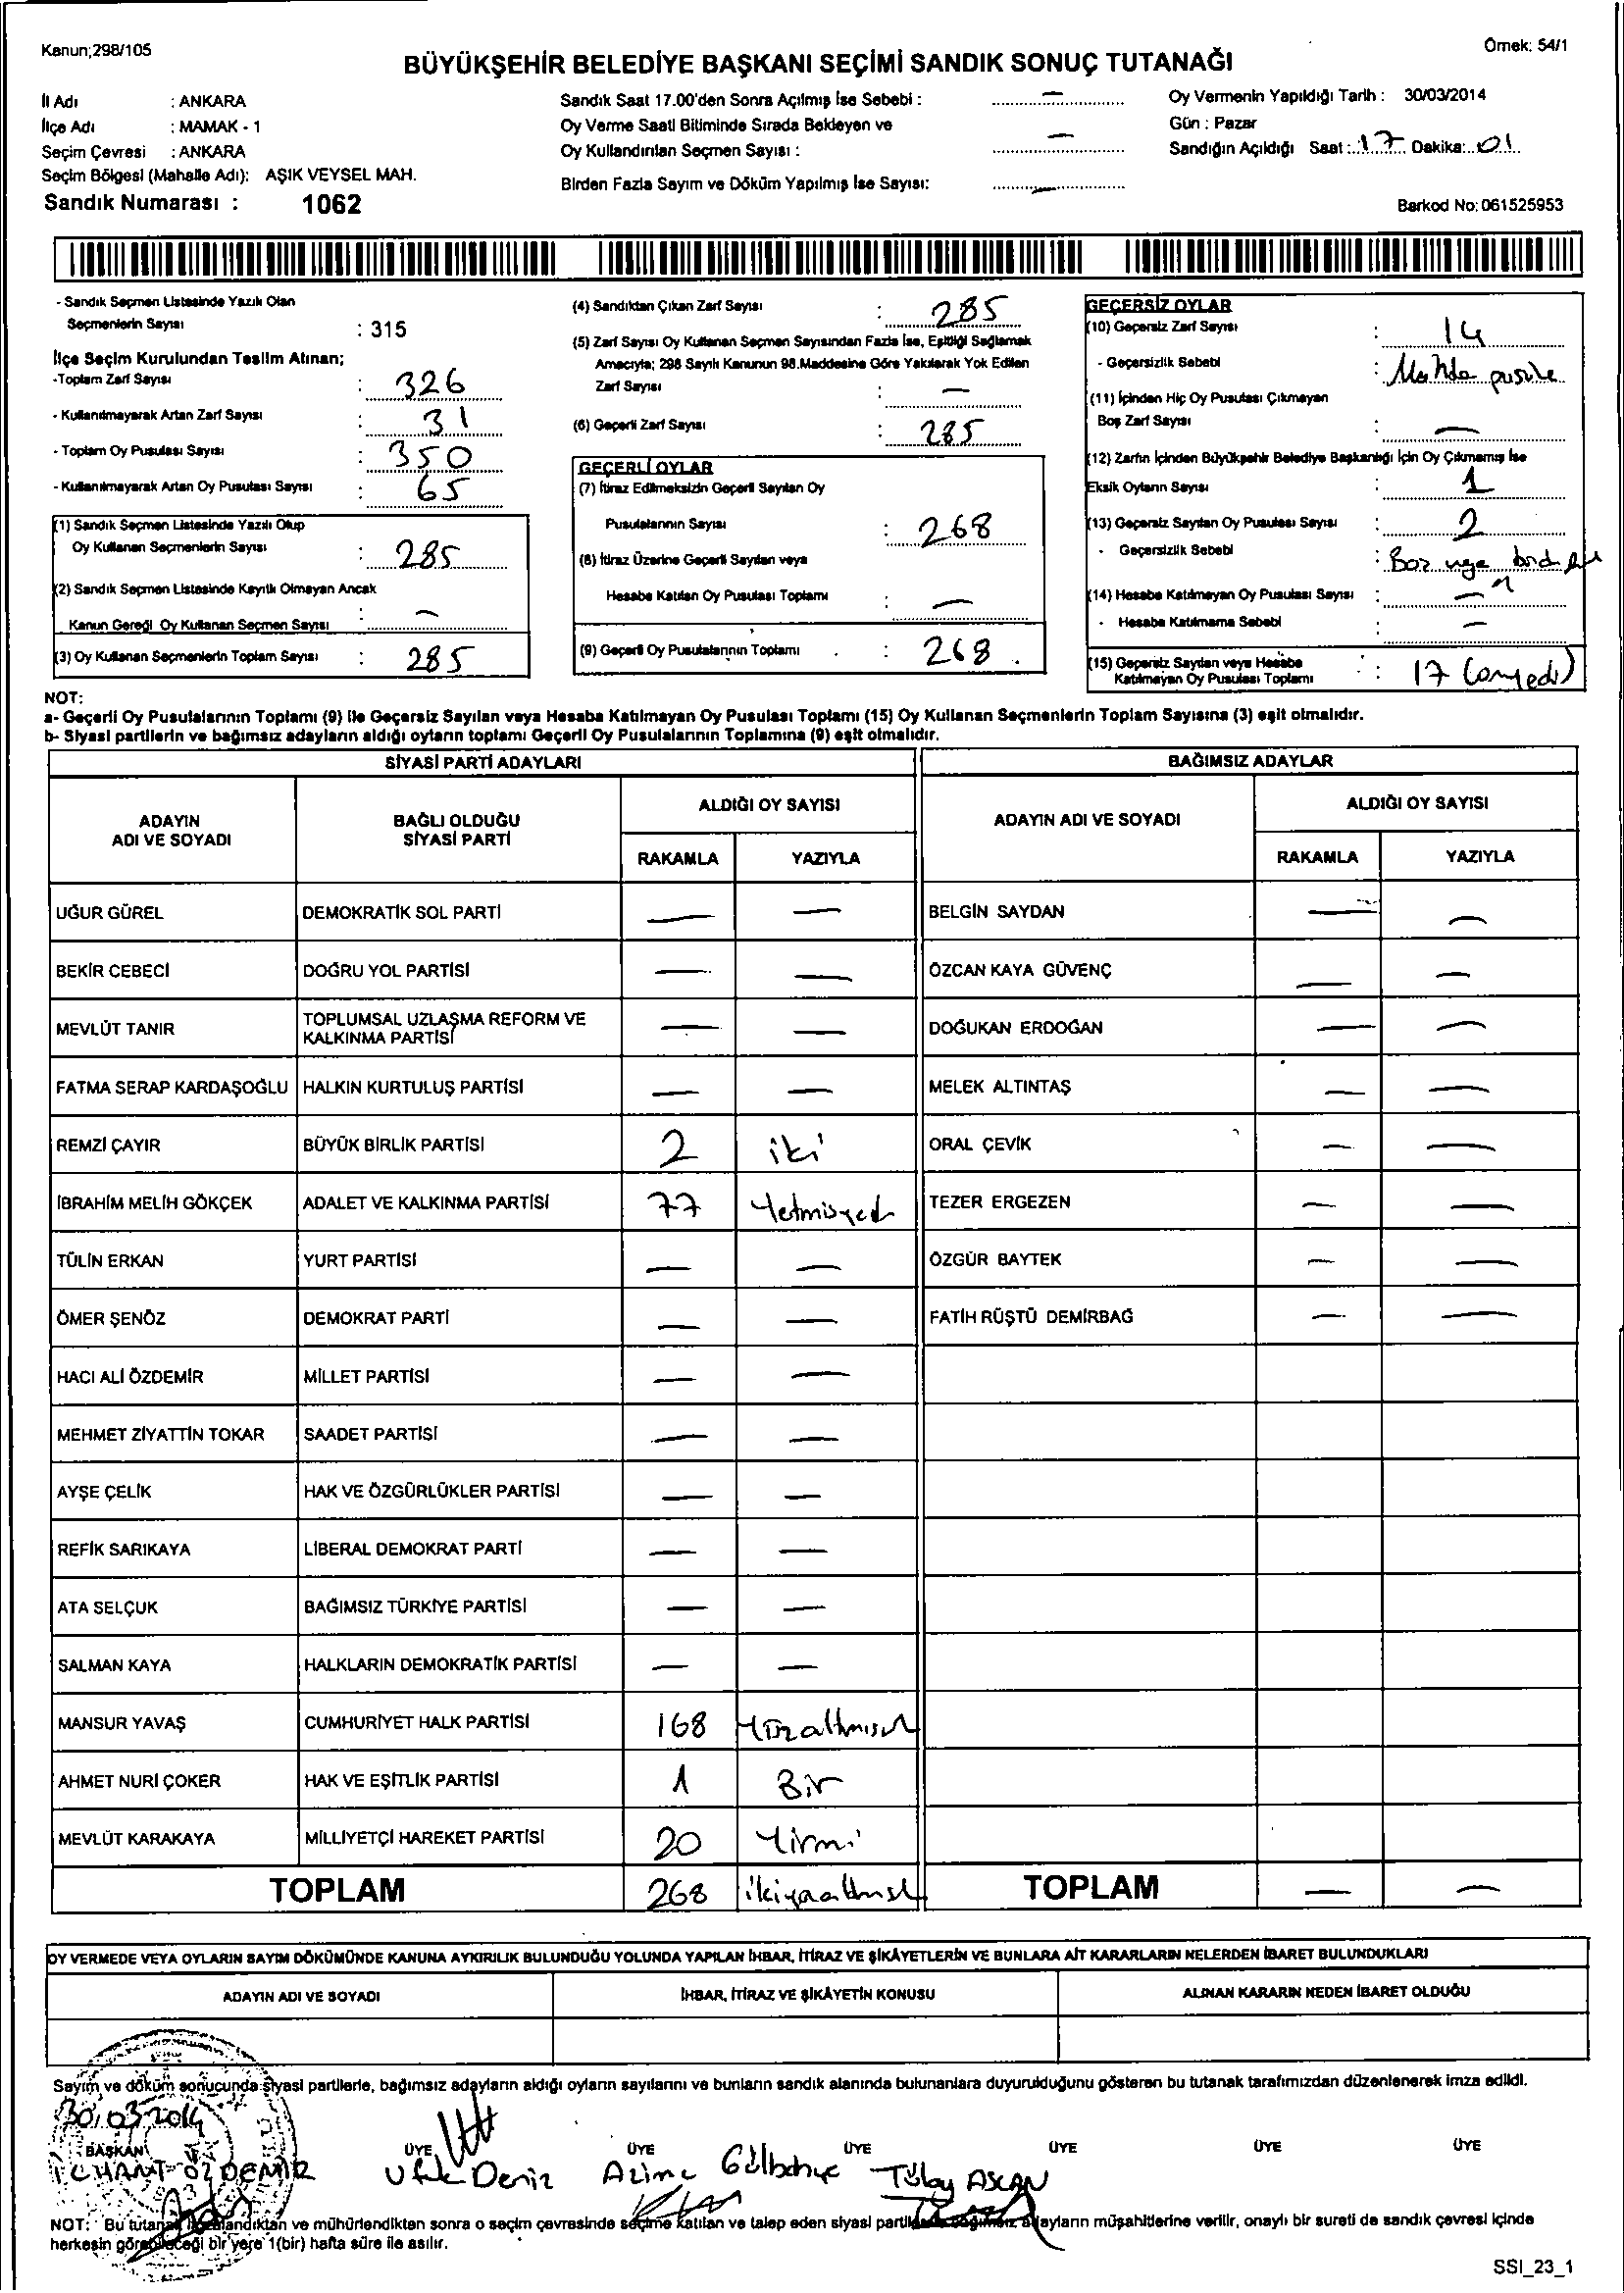 Kanun;298/105
Örnek: 54/1
BÜYÜKŞEHİR BELEDİYE BAŞKANI SEÇİMİ SANDIK SONUÇ TUTANAĞI
İl Adı : ANKARA
İlçe Adı : MAMAK - 1
Seçim Çevresi : ANKARA
Seçim Bölgesi (Mahalle Adı): AŞIK VEYSEL MAH.
Sandık Numarası : 1062
Sandık Saat 17.00'den Sonra Açılmış İse Sebebi : —
Oy Verme Saati Bitiminde Sırada Bekleyen ve
Oy Kullandırılan Seçmen Sayısı : —
Birden Fazla Sayım ve Döküm Yapılmış İse Sayısı: —
Oy Vermenin Yapıldığı Tarih : 30/03/2014
Gün : Pazar
Sandığın Açıldığı Saat : 17 Dakika: 01
Barkod No: 061525953
- Sandık Seçmen Listesinde Yazılı Olan
Seçmenlerin Sayısı : 315
İlçe Seçim Kurulundan Teslim Alınan;
-Toplam Zarf Sayısı : 326
- Kullanılmayarak Artan Zarf Sayısı : 31
- Toplam Oy Pusulası Sayısı : 350
- Kullanılmayarak Artan Oy Pusulası Sayısı : 65
(1) Sandık Seçmen Listesinde Yazılı Olup
Oy Kullanan Seçmenlerin Sayısı : 285
(2) Sandık Seçmen Listesinde Kayıtlı Olmayan Ancak
Kanun Gereği Oy Kullanan Seçmen Sayısı : —
(3) Oy Kullanan Seçmenlerin Toplam Sayısı : 285
(4) Sandıktan Çıkan Zarf Sayısı : 285
(5) Zarf Sayısı Oy Kullanan Seçmen Sayısından Fazla İse, Eşitliği Sağlamak
Amacıyla; 298 Sayılı Kanunun 98.Maddesine Göre Yakılarak Yok Edilen
Zarf Sayısı : —
(6) Geçerli Zarf Sayısı : 285
GEÇERLİ OYLAR
(7) İtiraz Edilmeksizin Geçerli Sayılan Oy
Pusulalarının Sayısı : 268
(8) İtiraz Üzerine Geçerli Sayılan veya
Hesaba Katılan Oy Pusulası Toplamı : —
(9) Geçerli Oy Pusulalarının Toplamı : 268
GEÇERSİZ OYLAR
(10) Geçersiz Zarf Sayısı : 14
- Geçersizlik Sebebi : pusula
(11) İçinden Hiç Oy Pusulası Çıkmayan
Boş Zarf Sayısı : —
(12) Zarfın İçinden Büyükşehir Belediye Başkanlığı İçin Oy Çıkmamış İse
Eksik Oyların Sayısı : 1
(13) Geçersiz Sayılan Oy Pusulası Sayısı : 2
- Geçersizlik Sebebi :
(14) Hesaba Katılmayan Oy Pusulası Sayısı : —
- Hesaba Katılmama Sebebi : —
(15) Geçersiz Sayılan veya Hesaba
Katılmayan Oy Pusulası Toplamı : 17 (onyedi)
NOT:
a- Geçerli Oy Pusulalarının Toplamı (9) ile Geçersiz Sayılan veya Hesaba Katılmayan Oy Pusulası Toplamı (15) Oy Kullanan Seçmenlerin Toplam Sayısına (3) eşit olmalıdır.
b- Siyasi partilerin ve bağımsız adayların aldığı oyların toplamı Geçerli Oy Pusulalarının Toplamına (9) eşit olmalıdır.
SİYASİ PARTİ ADAYLARI
ADAYIN ADI VE SOYADI BAĞLI OLDUĞU SİYASİ PARTİ ALDIĞI OY SAYISI
RAKAMLA YAZIYLA
UĞUR GÜREL DEMOKRATİK SOL PARTİ — —
BEKİR CEBECİ DOĞRU YOL PARTİSİ — —
MEVLÜT TANIR TOPLUMSAL UZLAŞMA REFORM VE KALKINMA PARTİSİ — —
FATMA SERAP KARDAŞOĞLU HALKIN KURTULUŞ PARTİSİ — —
REMZİ ÇAYIR BÜYÜK BİRLİK PARTİSİ 2 iki
İBRAHİM MELİH GÖKÇEK ADALET VE KALKINMA PARTİSİ 77 Yetmişyedi
TÜLİN ERKAN YURT PARTİSİ — —
ÖMER ŞENÖZ DEMOKRAT PARTİ — —
HACI ALİ ÖZDEMİR MİLLET PARTİSİ — —
MEHMET ZİYATTİN TOKAR SAADET PARTİSİ — —
AYŞE ÇELİK HAK VE ÖZGÜRLÜKLER PARTİSİ — —
REFİK SARIKAYA LİBERAL DEMOKRAT PARTİ — —
ATA SELÇUK BAĞIMSIZ TÜRKİYE PARTİSİ — —
SALMAN KAYA HALKLARIN DEMOKRATİK PARTİSİ — —
MANSUR YAVAŞ CUMHURİYET HALK PARTİSİ 168
AHMET NURİ ÇOKER HAK VE EŞİTLİK PARTİSİ 1 Bir
MEVLÜT KARAKAYA MİLLİYETÇİ HAREKET PARTİSİ 20 Yirmi
TOPLAM 268
BAĞIMSIZ ADAYLAR
ADAYIN ADI VE SOYADI ALDIĞI OY SAYISI
RAKAMLA YAZIYLA
BELGİN SAYDAN — —
ÖZCAN KAYA GÜVENÇ — —
DOĞUKAN ERDOĞAN — —
MELEK ALTINTAŞ — —
ORAL ÇEVİK — —
TEZER ERGEZEN — —
ÖZGÜR BAYTEK — —
FATİH RÜŞTÜ DEMİRBAĞ — —
TOPLAM — —
OY VERMEDE VEYA OYLARIN SAYIM DÖKÜMÜNDE KANUNA AYKIRILIK BULUNDUĞU YOLUNDA YAPILAN İHBAR, İTİRAZ VE ŞİKÂYETLERİN VE BUNLARA AİT KARARLARIN NELERDEN İBARET BULUNDUKLARI
ADAYIN ADI VE SOYADI İHBAR, İTİRAZ VE ŞİKÂYETİN KONUSU ALINAN KARARIN NEDEN İBARET OLDUĞU
Sayım ve döküm sonucunda siyasi partilerle, bağımsız adayların aldığı oyların sayılarını ve bunların sandık alanında bulunanlara duyurulduğunu gösteren bu tutanak tarafımızdan düzenlenerek imza edildi.
30.03.2014
BAŞKAN ÜYE ÜYE ÜYE ÜYE ÜYE ÜYE
ÖZDEMİR Ufuk Deniz Azime Gülbahçe Tülay ASLAN
NOT: Bu tutanak imzalandıktan ve mühürlendikten sonra o seçim çevresinde seçime katılan ve talep eden siyasi partilerle bağımsız adayların müşahitlerine verilir, onaylı bir sureti de sandık çevresi içinde
herkesin görebileceği bir yere 1(bir) hafta süre ile asılır.
SSI_23_1